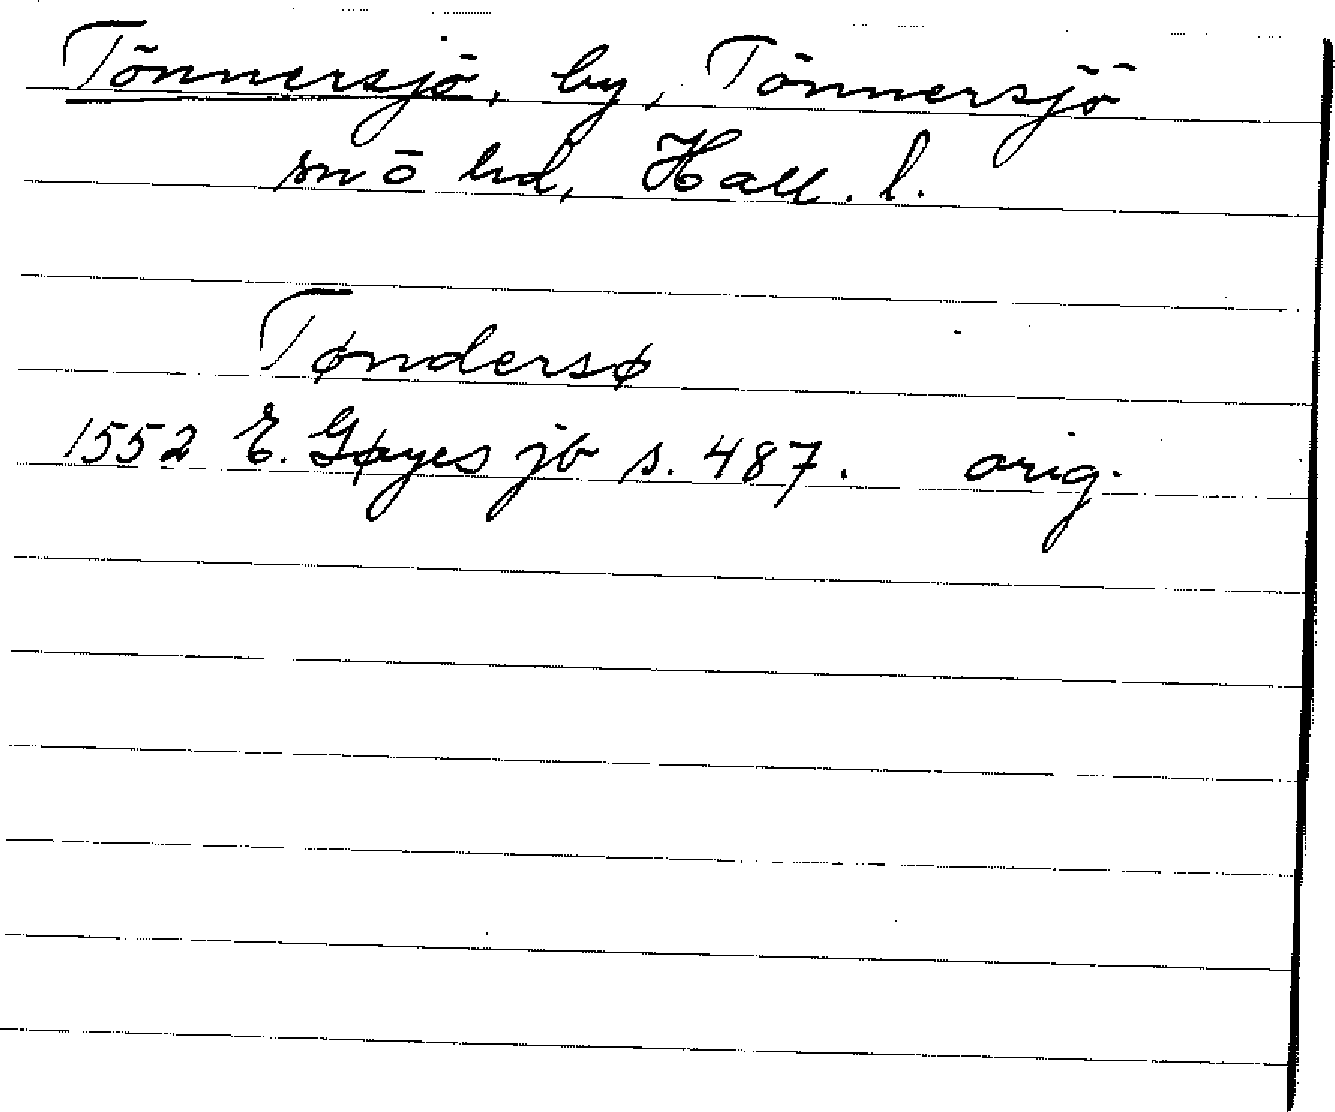 Tönnersjö, by, Tönnersjö
sn o hd, Hall. l.
Tøndersø
1552 E. Gøyes jb s. 487. orig.